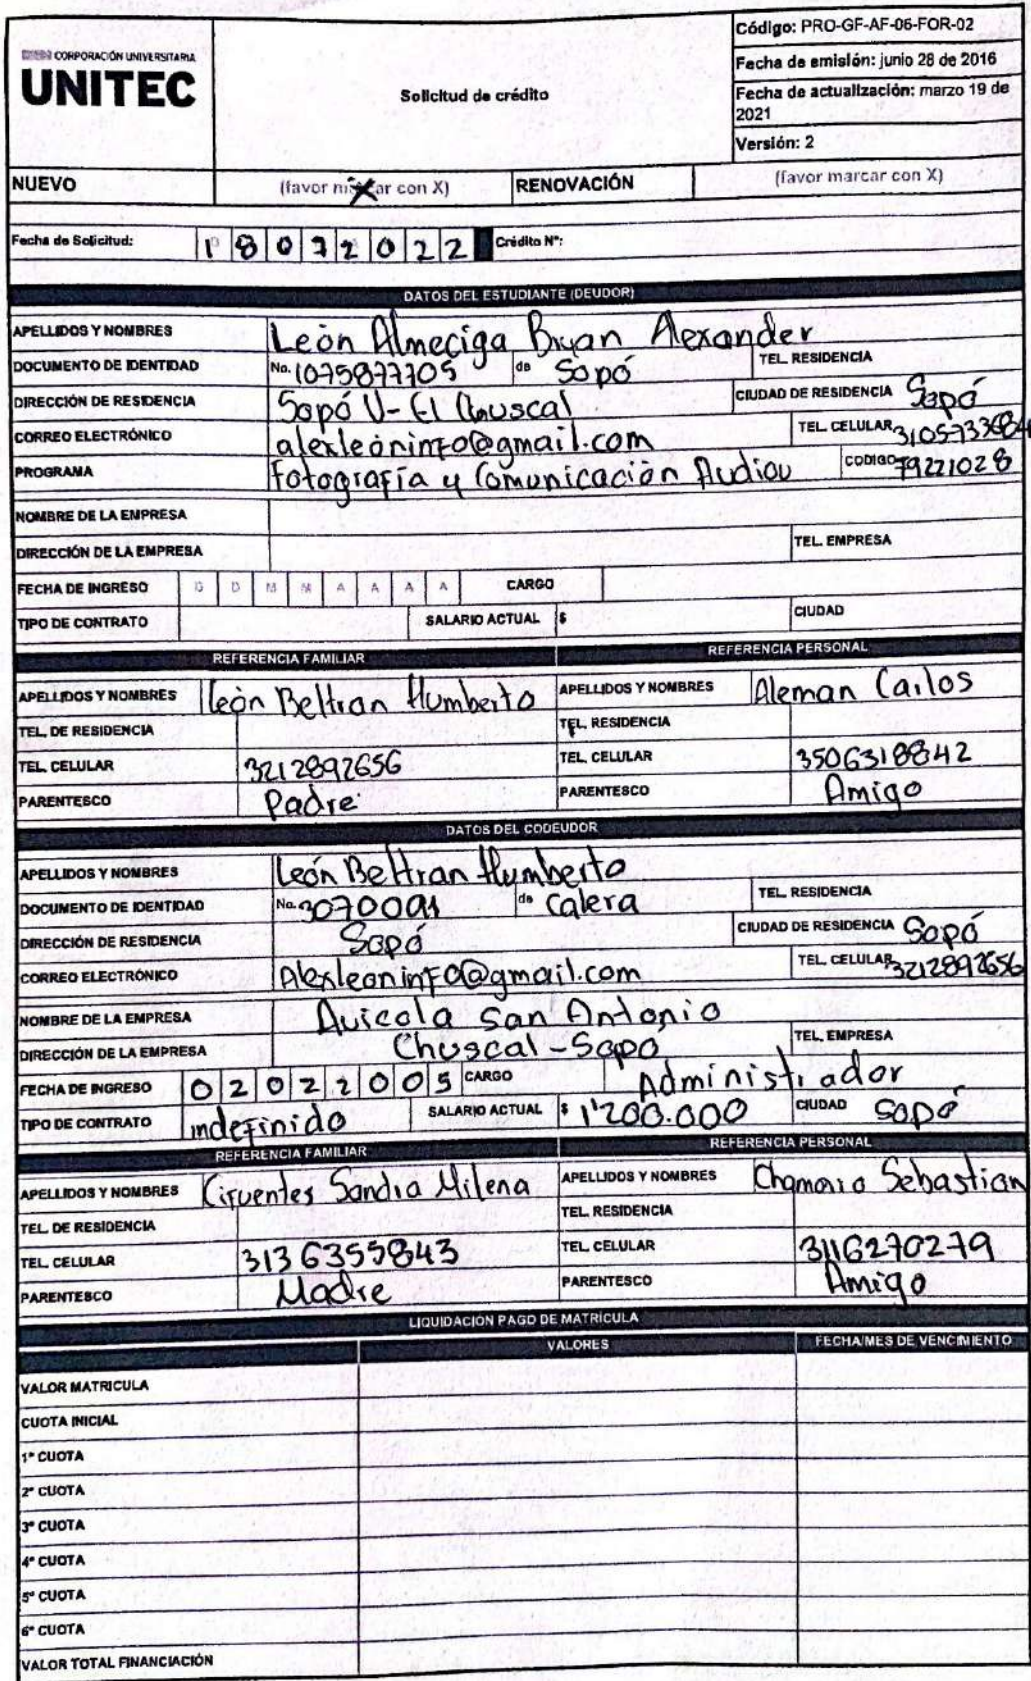 CORPORACIÓN UNIVERSITARIA
UNITEC
Solicitud de crédito
Código: PRO-GF-AF-06-FOR-02
Fecha de emisión: junio 28 de 2016
Fecha de actualización: marzo 19 de
2021
Versión: 2
NUEVO (favor marcar con X) RENOVACIÓN (favor marcar con X)
Fecha de Solicitud: 1 8 0 7 2 0 2 2 Crédito N°:
DATOS DEL ESTUDIANTE (DEUDOR)
APELLIDOS Y NOMBRES León Almeciga Bryan Alexander
DOCUMENTO DE IDENTIDAD No. 1075877705 de Sopó TEL. RESIDENCIA
DIRECCIÓN DE RESIDENCIA Sopó V-El Chuscal CIUDAD DE RESIDENCIA Sopó
CORREO ELECTRÓNICO alexleóninfo@gmail.com TEL. CELULAR
PROGRAMA Fotografía y Comunicación Audiov CODIGO 79221028
NOMBRE DE LA EMPRESA
DIRECCIÓN DE LA EMPRESA TEL. EMPRESA
FECHA DE INGRESO D D M M A A A A CARGO
TIPO DE CONTRATO SALARIO ACTUAL $ CIUDAD
REFERENCIA FAMILIAR REFERENCIA PERSONAL
APELLIDOS Y NOMBRES León Beltran Humberto APELLIDOS Y NOMBRES Aleman Carlos
TEL. DE RESIDENCIA TEL. RESIDENCIA
TEL. CELULAR 3212892656 TEL. CELULAR 3506318842
PARENTESCO Padre PARENTESCO Amigo
DATOS DEL CODEUDOR
APELLIDOS Y NOMBRES León Beltran Humberto
DOCUMENTO DE IDENTIDAD No. 3070091 de Calera TEL. RESIDENCIA
DIRECCIÓN DE RESIDENCIA Sopó CIUDAD DE RESIDENCIA Sopó
CORREO ELECTRÓNICO Alexleoninfo@gmail.com TEL. CELULAR 3212892656
NOMBRE DE LA EMPRESA Avicola San Antonio
DIRECCIÓN DE LA EMPRESA Chuscal-Sopo TEL. EMPRESA
FECHA DE INGRESO 0 2 0 2 2 0 0 5 CARGO Administrador
TIPO DE CONTRATO indefinido SALARIO ACTUAL $ 1'200.000 CIUDAD Sopó
REFERENCIA FAMILIAR REFERENCIA PERSONAL
APELLIDOS Y NOMBRES Cifuentes Sandra Milena APELLIDOS Y NOMBRES Chamorro Sebastian
TEL. DE RESIDENCIA TEL. RESIDENCIA
TEL. CELULAR 3136355843 TEL. CELULAR 3116270279
PARENTESCO Madre PARENTESCO Amigo
LIQUIDACIÓN PAGO DE MATRÍCULA
VALORES FECHA/MES DE VENCIMIENTO
VALOR MATRICULA
CUOTA INICIAL
1ª CUOTA
2ª CUOTA
3ª CUOTA
4ª CUOTA
5ª CUOTA
6ª CUOTA
VALOR TOTAL FINANCIACIÓN